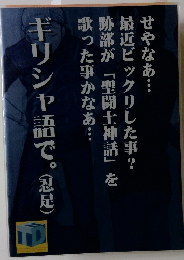 せやなあ…
最近ビックリした事？
跡部が「聖闘士神話」を
歌った事かなあ…
ギリシャ語で。（忍足）